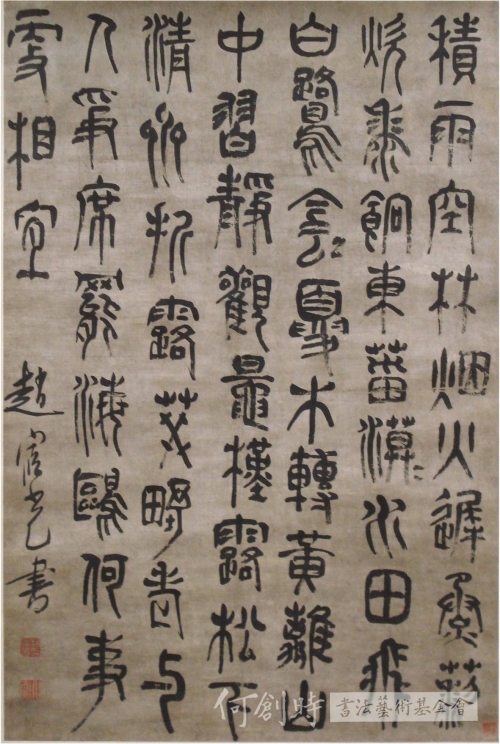 積雨空林烟火遲蒸藜
炊黍餉東菑漠〻水田飛
白鷺侌〻夏木轉黃離山
中習靜觀鼂槿露松下
清齋折露葵野老与
人爭席罷海鷗何事
相宜
趙宧光書
何創時 書法藝術基金會